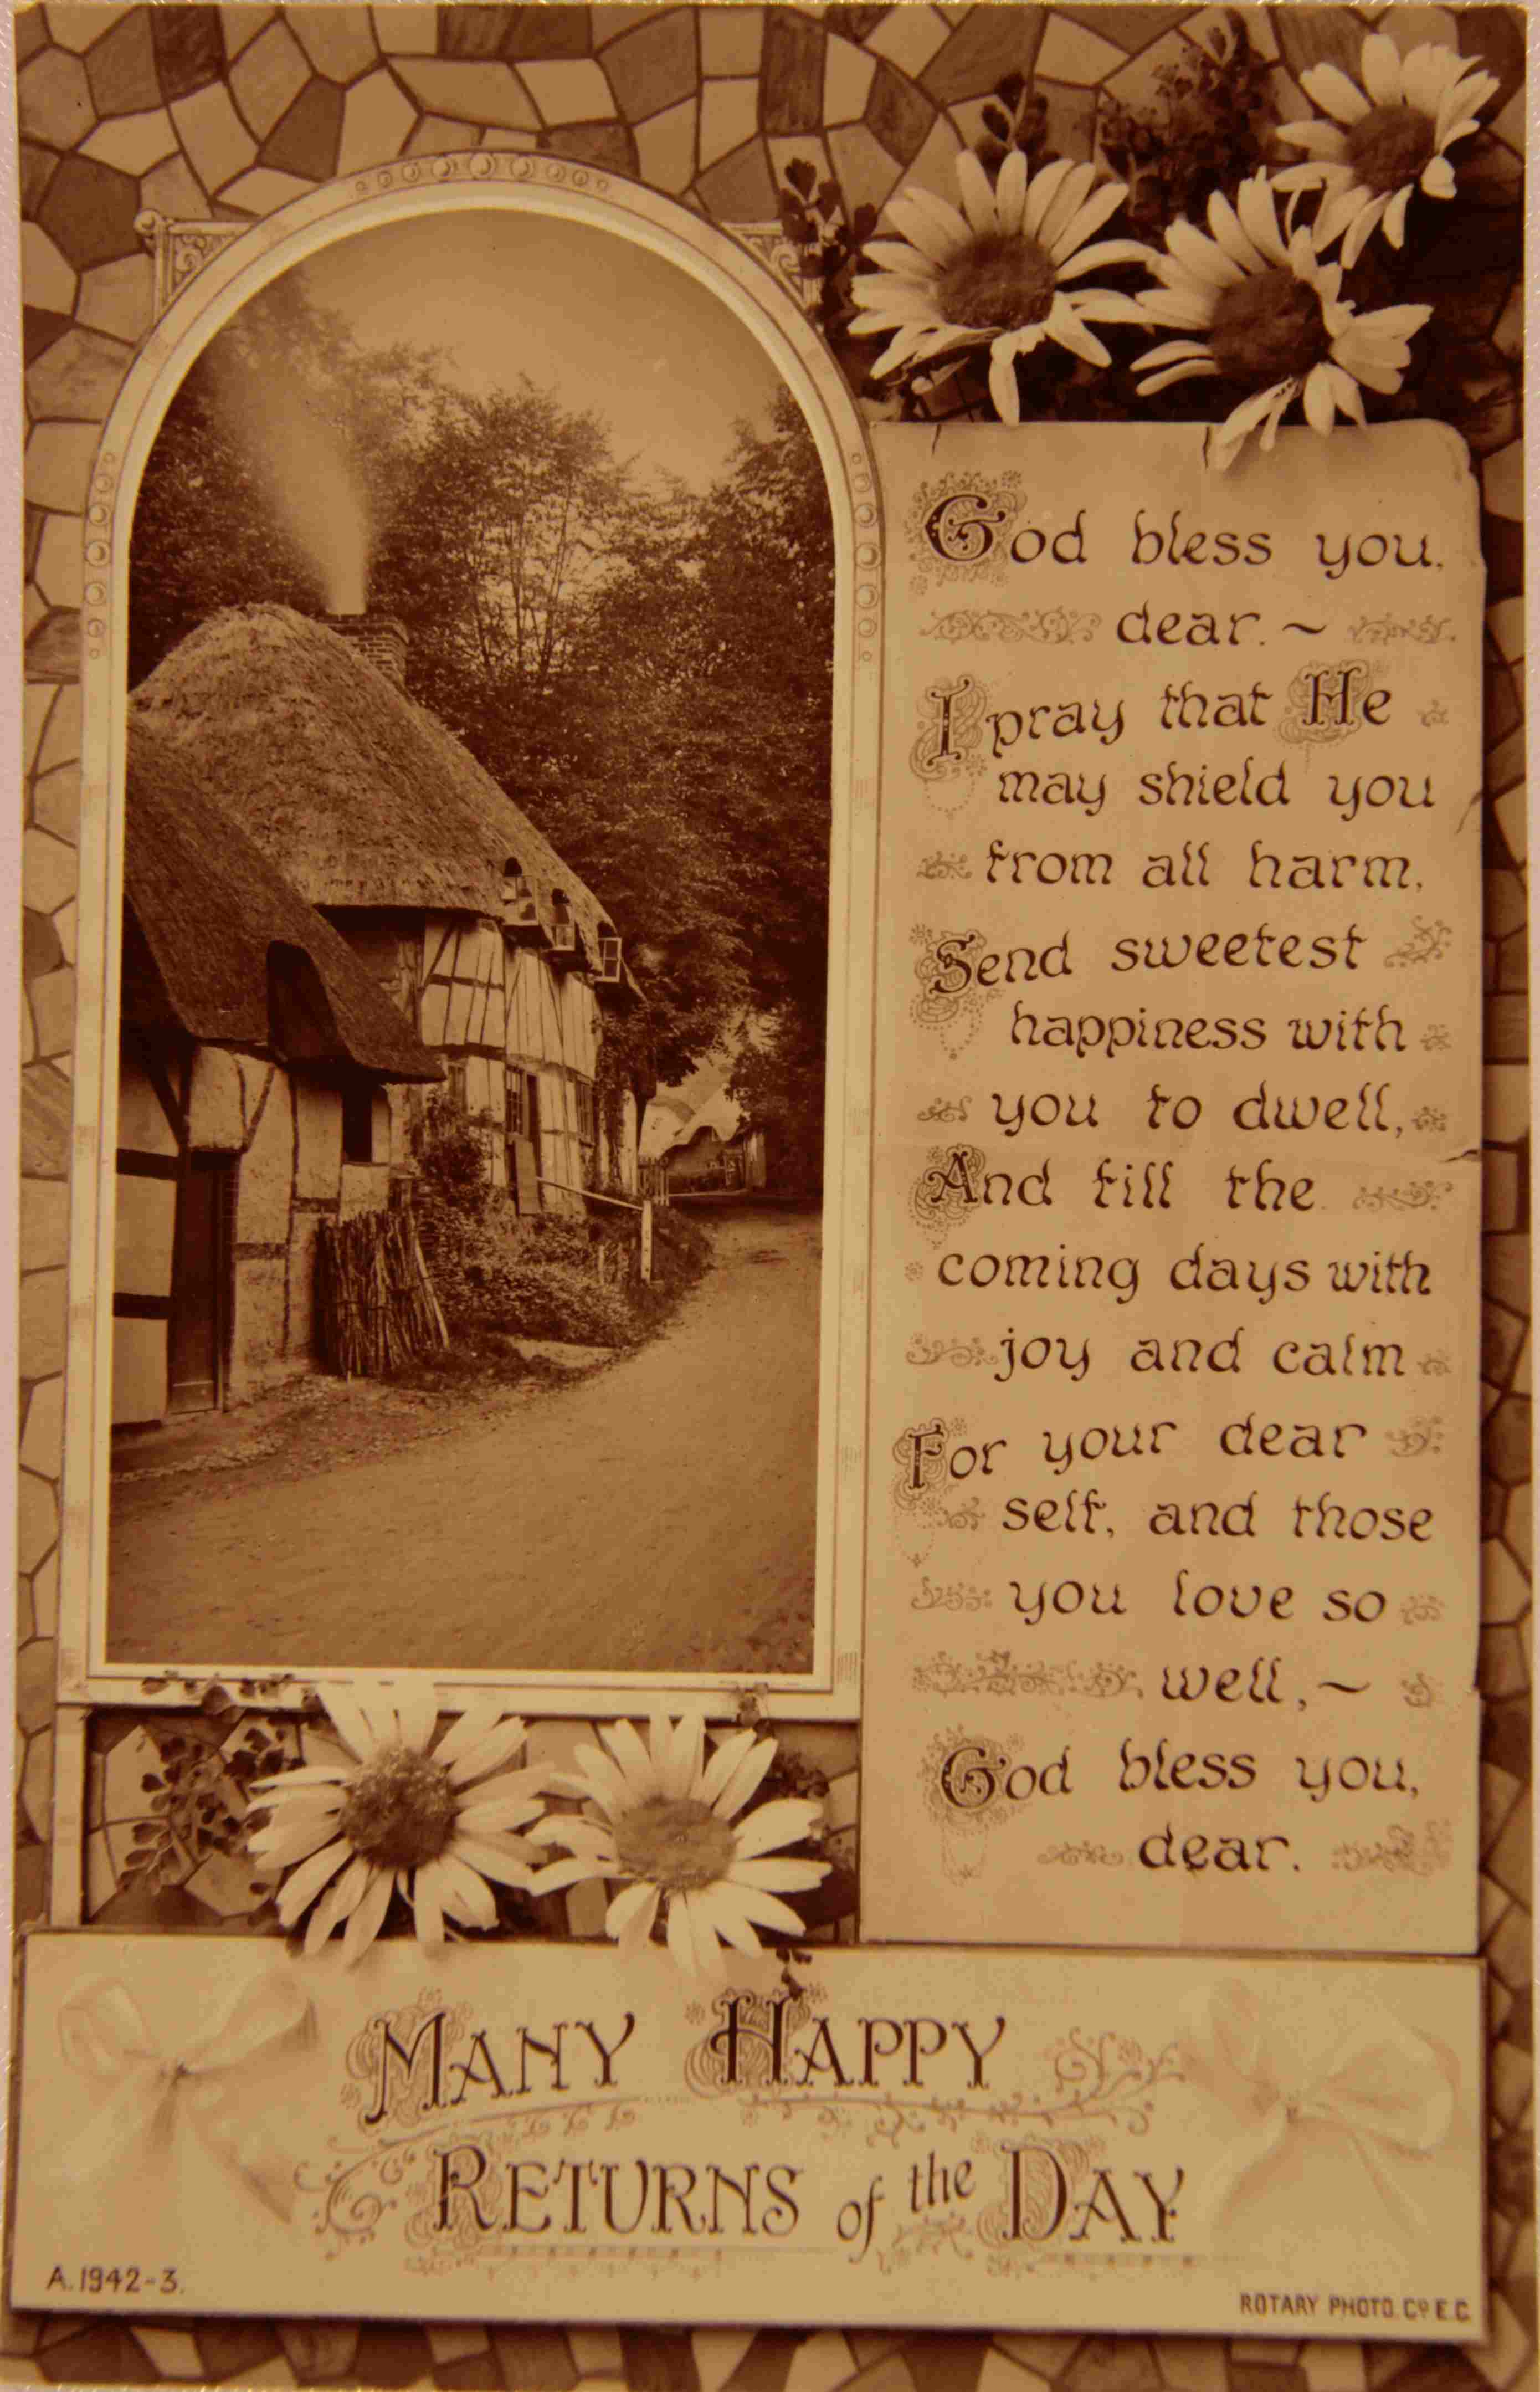 God bless you,
dear. ~
I pray that He
may shield you
from all harm,
Send sweetest
happiness with
you to dwell,
And fill the
coming days with
joy and calm
For your dear
self, and those
you love so
well, ~
God bless you,
dear.
MANY HAPPY
RETURNS of the DAY
A.1942-3.
ROTARY PHOTO. Co E.C.